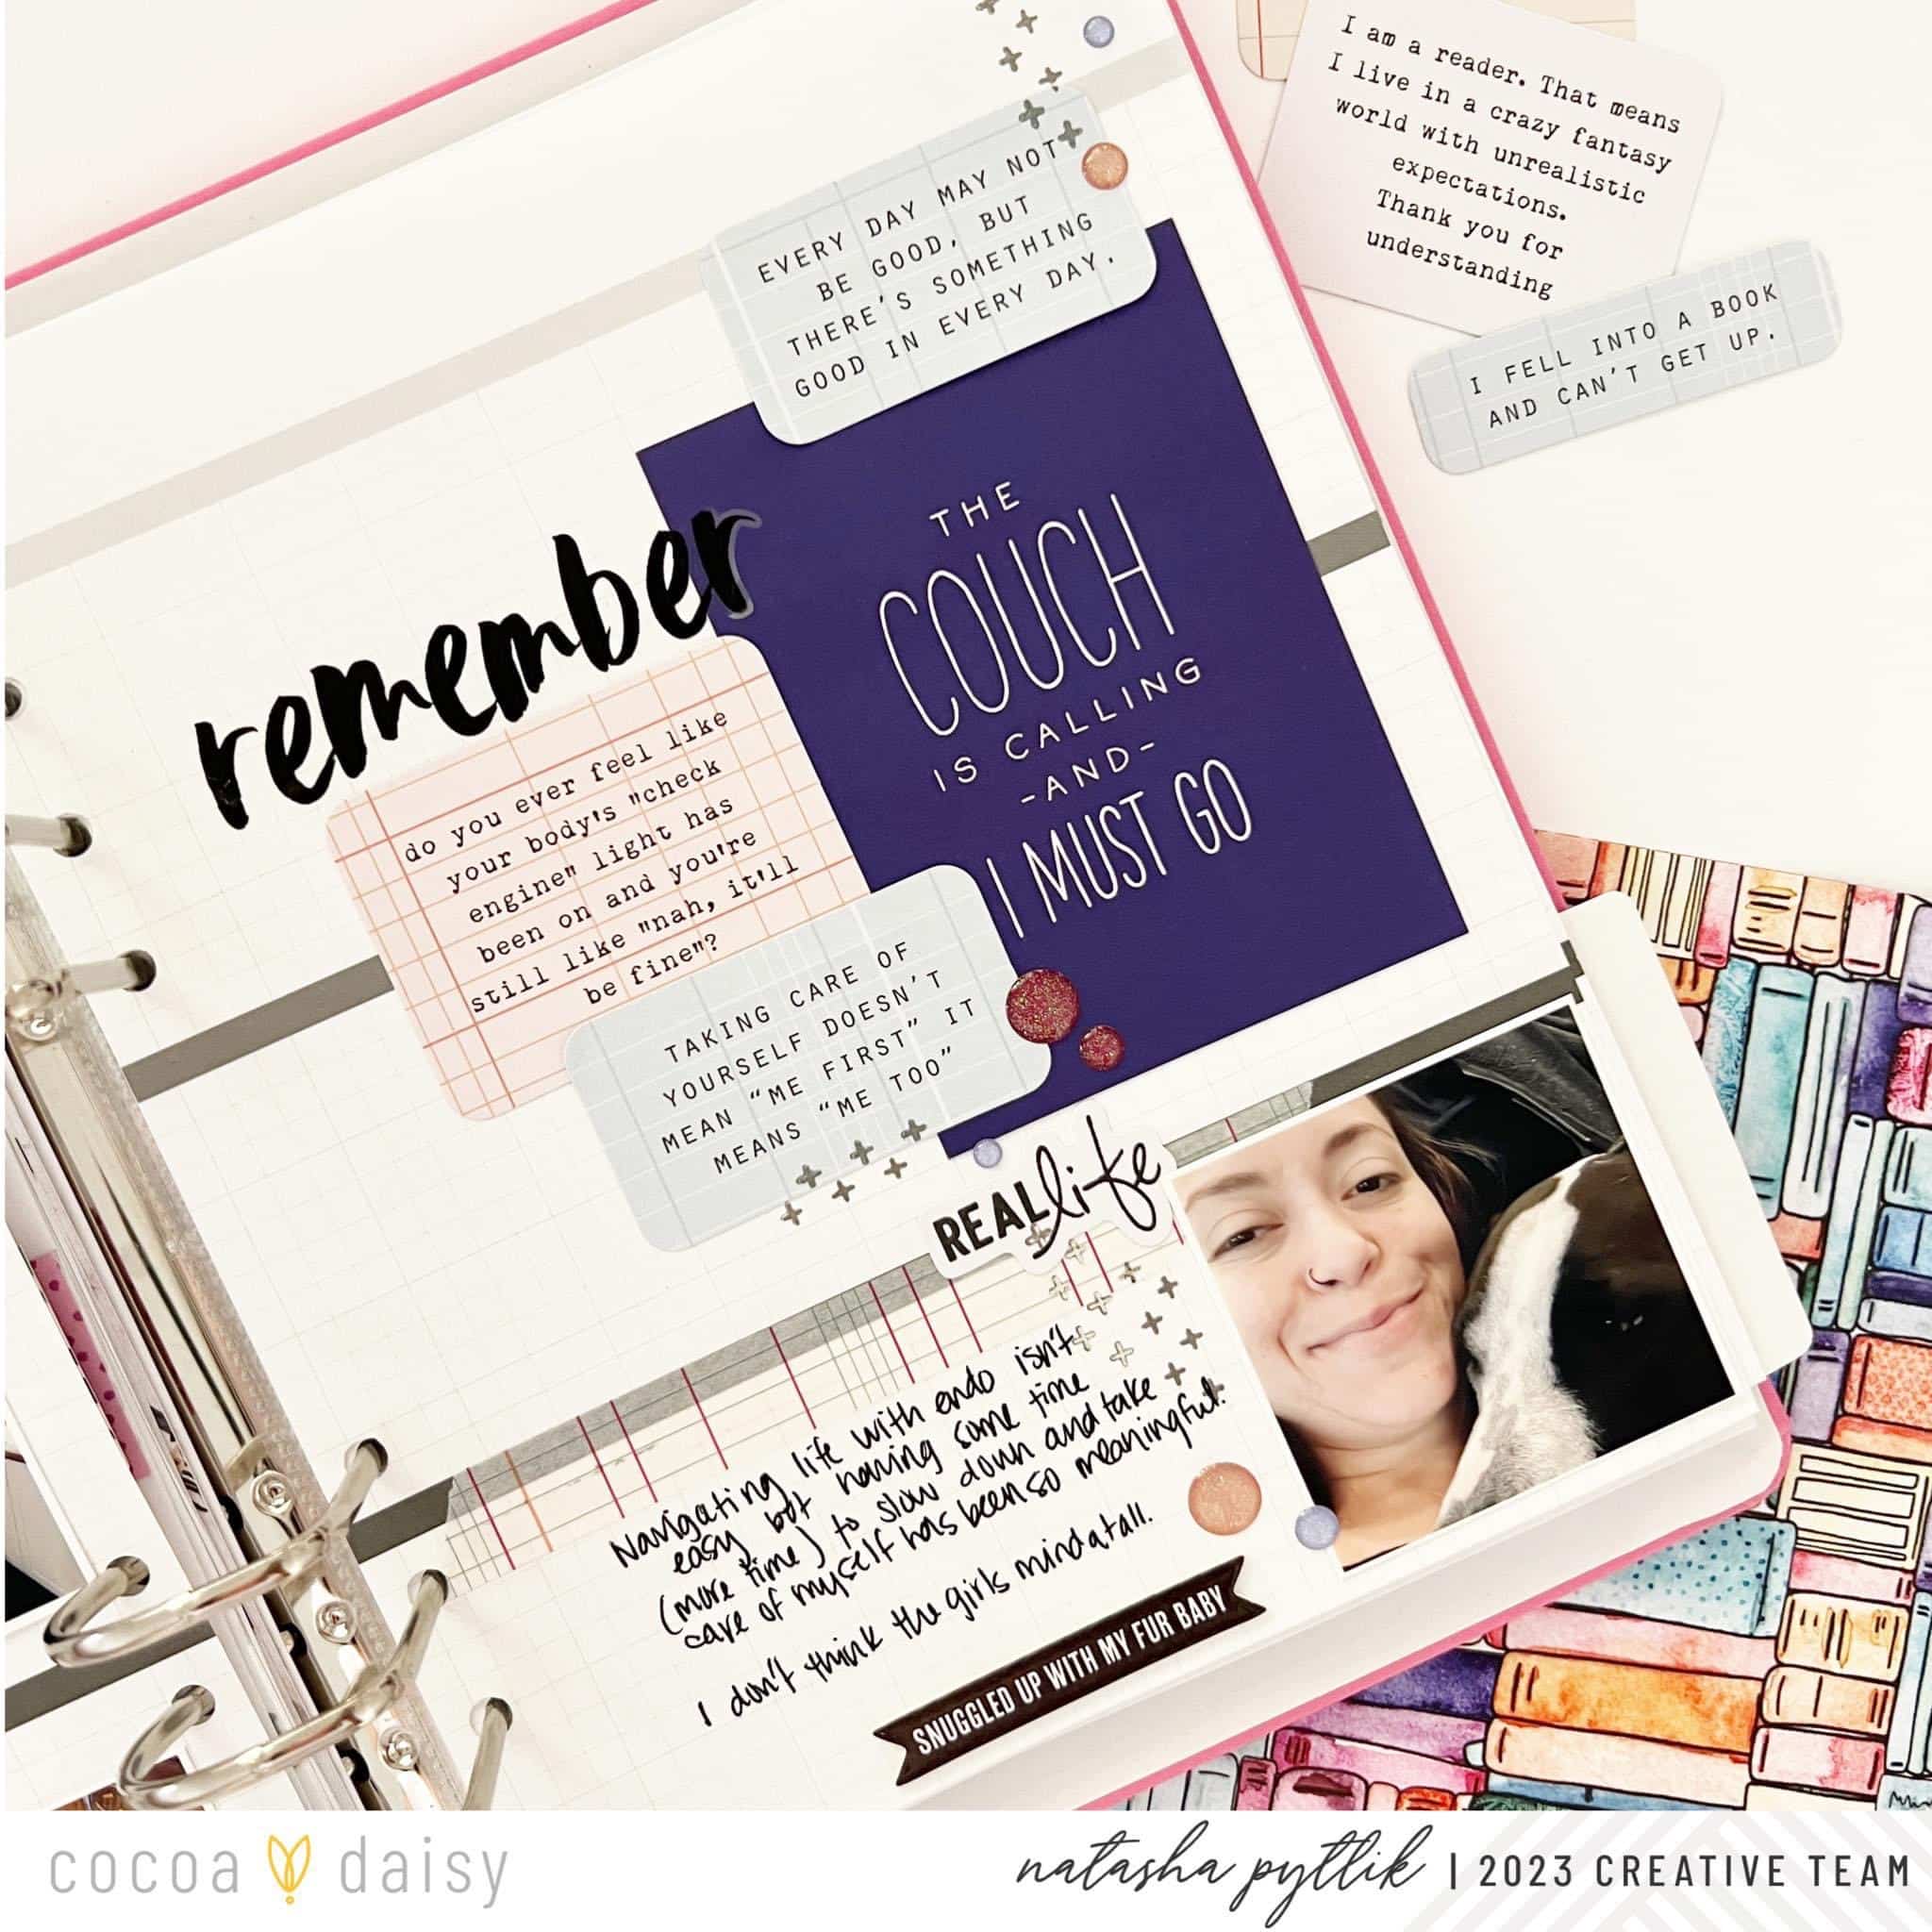 I am a reader. That means
I live in a crazy fantasy
world with unrealistic
expectations.
Thank you for
understanding
I FELL INTO A BOOK
AND CAN'T GET UP.
EVERY DAY MAY NOT
BE GOOD, BUT
THERE'S SOMETHING
GOOD IN EVERY DAY.
THE
COUCH
IS CALLING
-AND-
I MUST GO
remember
do you ever feel like
your body's "check
engine" light has
been on and you're
still like "nah, it'll
be fine"?
TAKING CARE OF
YOURSELF DOESN'T
MEAN "ME FIRST" IT
MEANS "ME TOO"
REAL life
Navigating life with endo isn't
easy but having some time
(more time) to slow down and take
care of myself has been so meaningful.
I don't think the girls mind at all.
SNUGGLED UP WITH MY FUR BABY
cocoa daisy
natasha pyttlik | 2023 CREATIVE TEAM